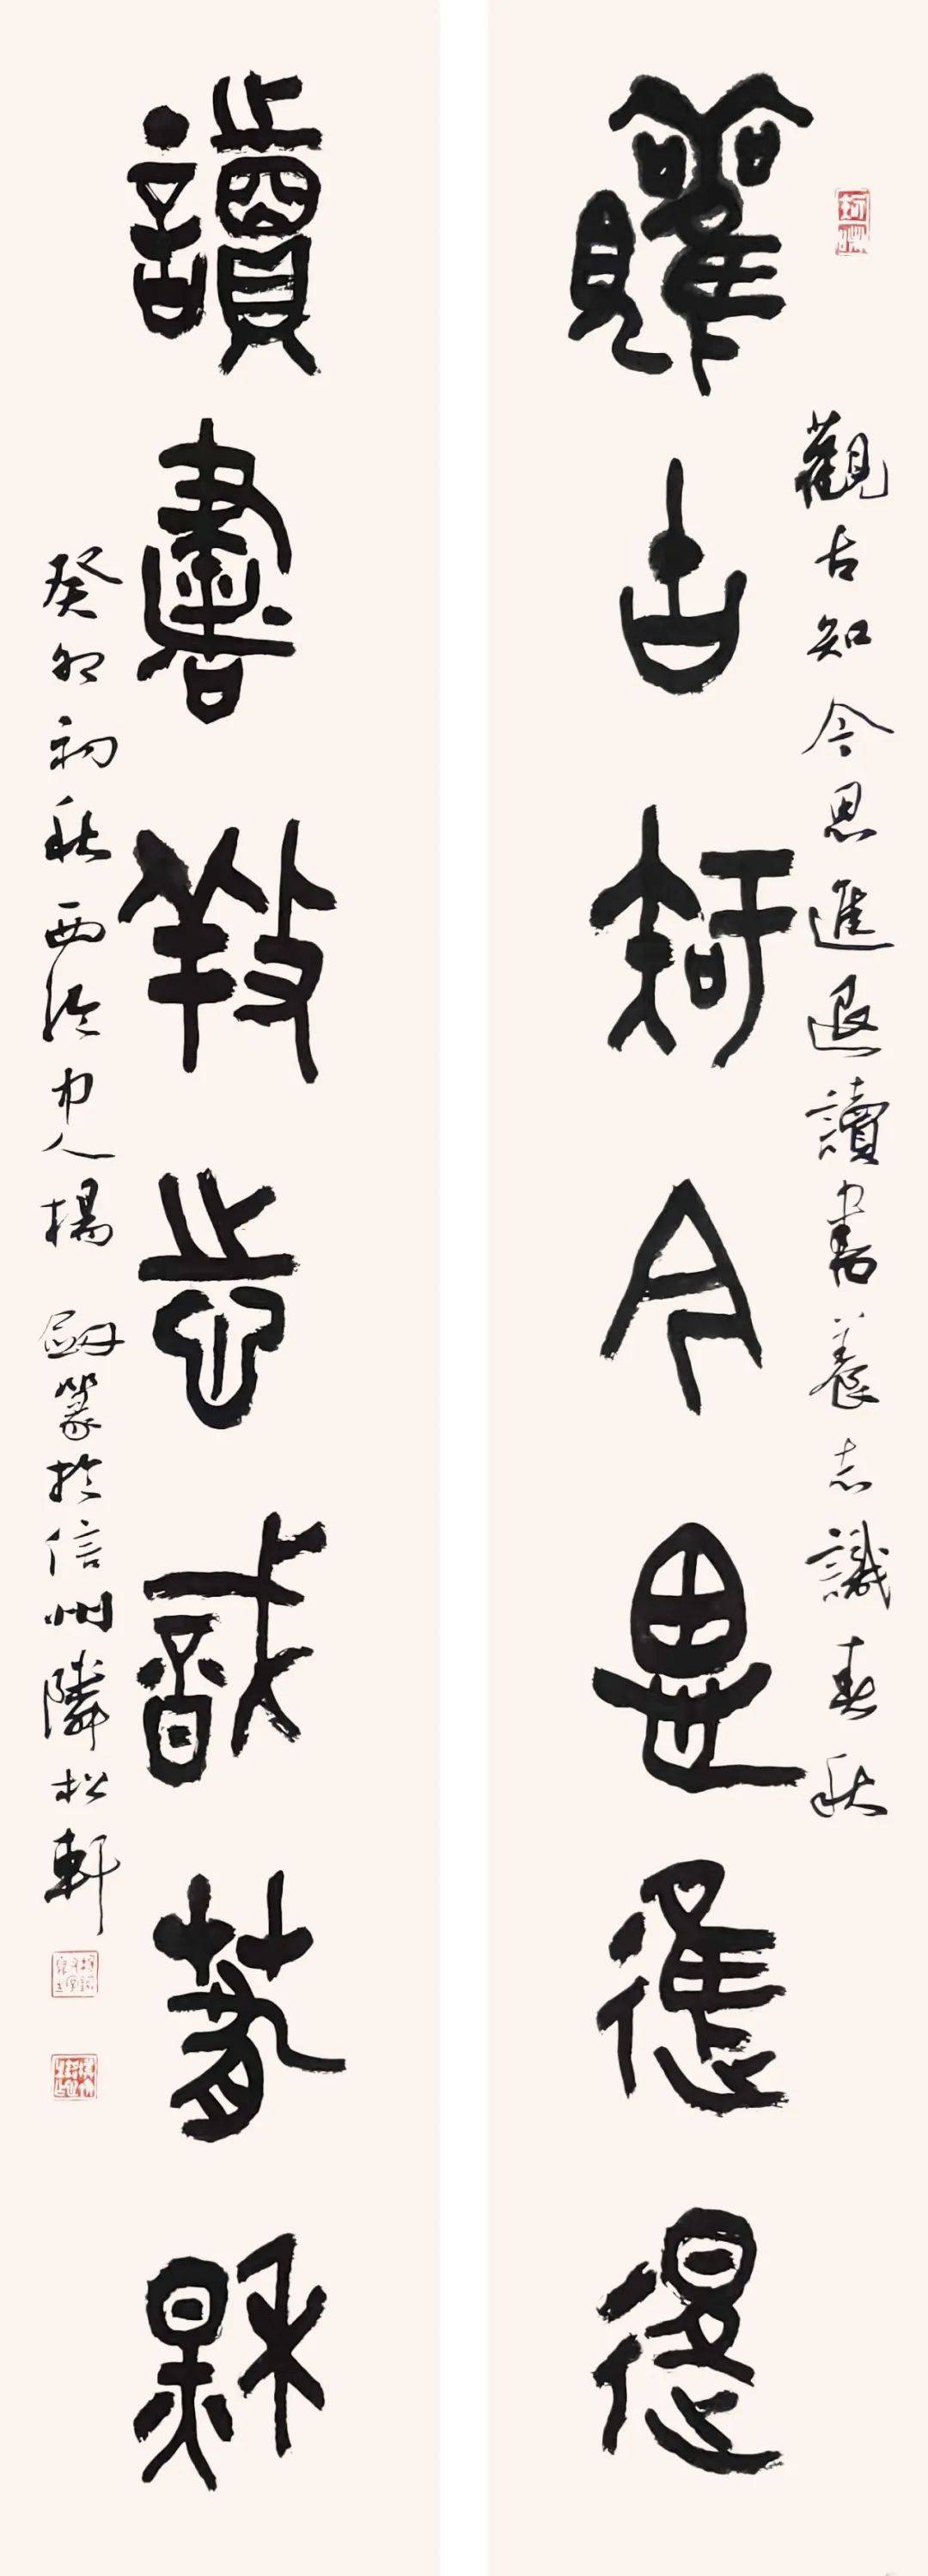 觀古知今思進退
觀古知今思進退讀書養志識春秋
讀書養志識春秋
癸卯初秋西泠中人楊劒篆於信州隣松軒